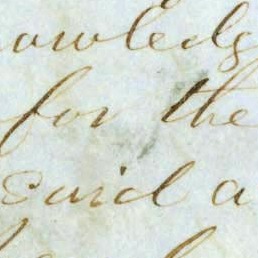 owledg
for the
said a